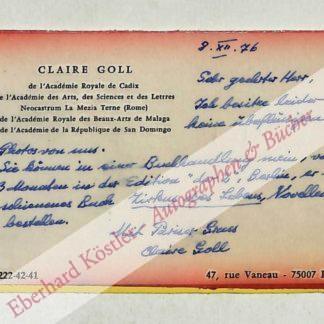 8. XII. 76
CLAIRE GOLL
de l'Académie Royale de Cadix
de l'Académie des Arts, des Sciences et des Lettres
Neocastrum La Mezia Terne (Rome)
de l'Académie Royale des Beaux-Arts de Malaga
de l'Académie de la République de San Domingo
Sehr geehrter Herr,
Ich besitze leider
keine überflüssigen
Photos von uns.
Sie können in einer Buchhandlung mein, vor
3 Monaten in der Edition Berlin, er-
schienenes Buch Zirkus des Lebens, Novellen
bestellen.
Mit Pariser Gruss
Claire Goll
222-42-41
47, rue Vaneau - 75007
Eberhard Köstler Autographen & Bücher